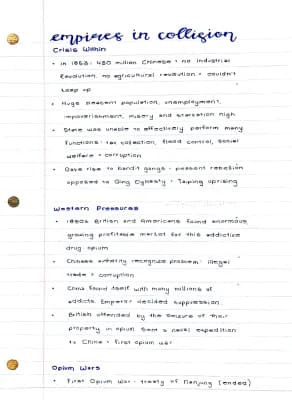 empires in collision
Crisis Within
• in 1853: 430 million Chinese + no industrial
Revolution, no agricultural revolution = couldn't
keep up
• Huge peasant population, unemployment,
impoverishment, misery and starvation high
• State was unable to effectively perform many
functions: tax collection, flood control, social
welfare = corruption
• Gave rise to bandit gangs + peasant rebellion
opposed to Qing Dynasty = Taiping uprising
Western Pressures
• British and Americans found enormous,
growing profitable market for this addictive
drug: opium
• Chinese authority recognize problem: illegal
trade + corruption
• China found itself with many millions of
addicts. Emperor decided suppression
• British offended by the seizure of their
property in opium. Sent a naval expedition
to China = First opium war
Opium Wars
• First Opium War: treaty of Nanjing (ended)